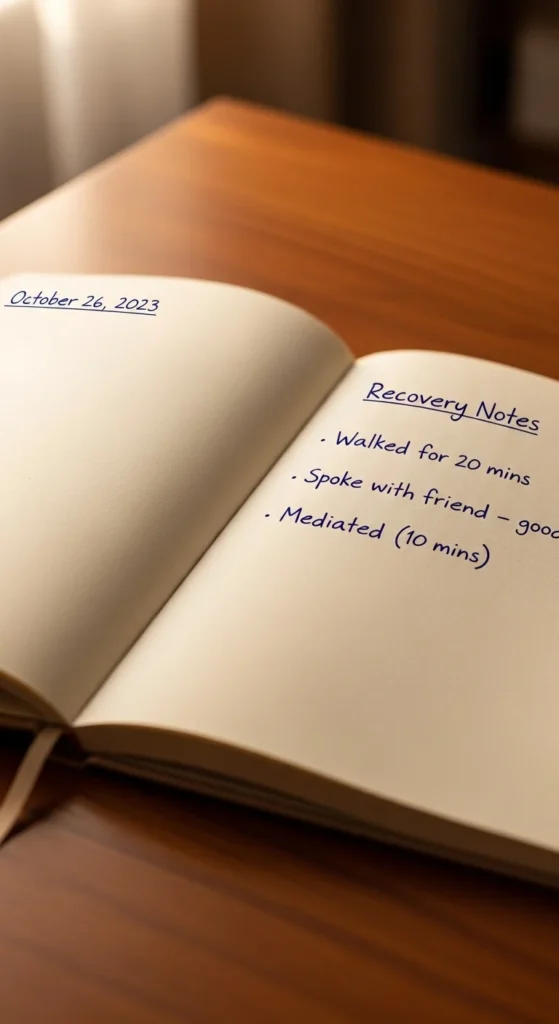 October 26, 2023
Recovery Notes
· Walked for 20 mins
· Spoke with friend – good
· Mediated (10 mins)